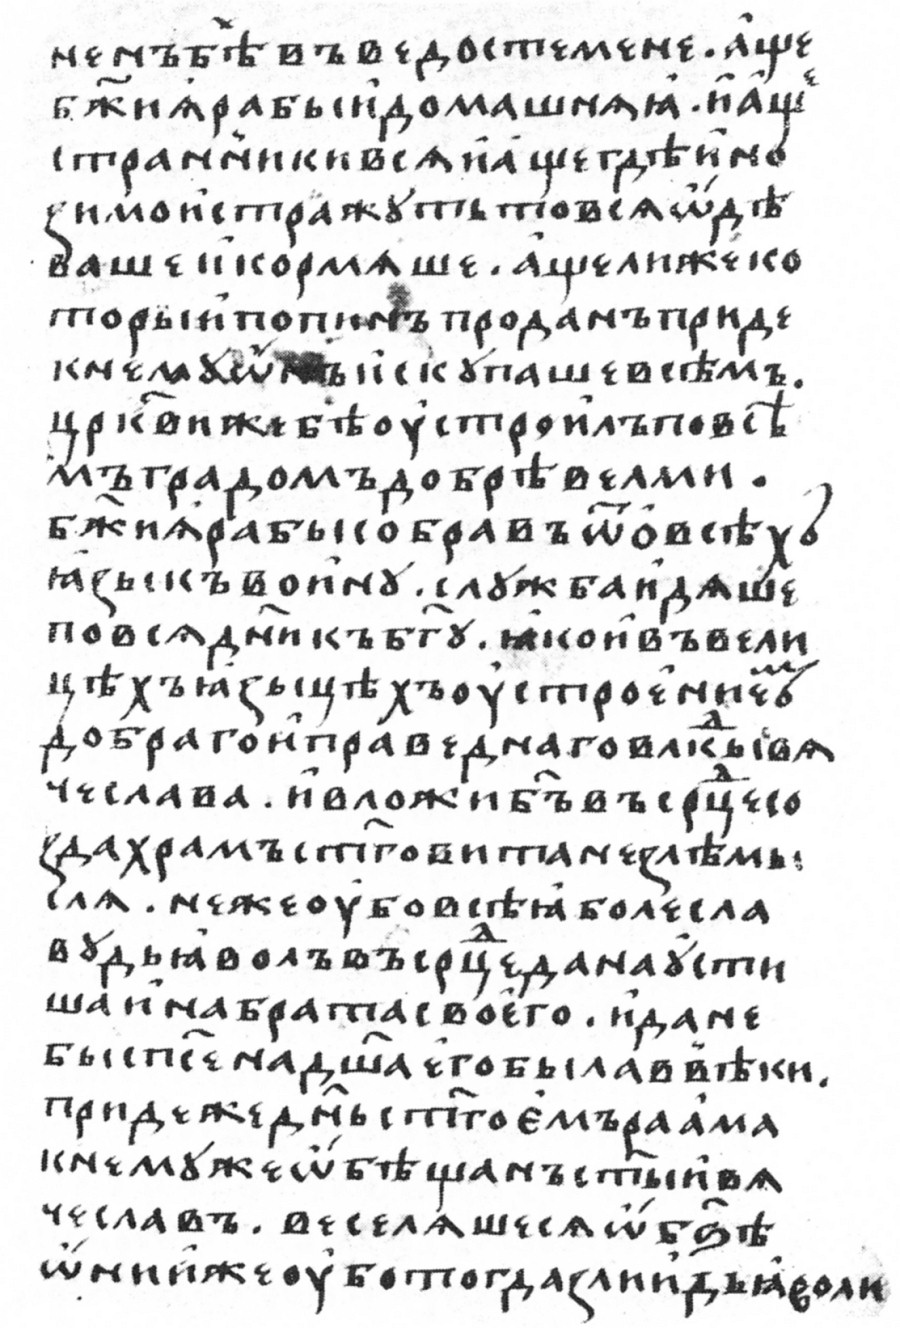 не нъ б҃ѣ въведост емене. а҆ще
бж҃иꙗ рабы и҆ домашнѧꙗ҆. и҆ а҆ще
странники всѧ и҆ а҆ще гдѣ и҆мо
зимои҆ стражуть то всѧ ѡ҆дѣ
ваше и҆ кормѧше. а҆ще ли же ко
торыи҆ попинъ проданъ приде
к нему ѡ҆нъ и҆скупаше всѣмъ.
црк҃ви же бѣ оу҆строилъ по всѣ
мъ градомъ добрѣ велми.
бж҃иꙗ рабы собравъ ѿ о҆ всѣхъ
ꙗ҆зыкъ воину. служба и҆дѧше
по всѧ дн҃и къ бг҃у. ꙗ҆ко и҆ въ вели
цѣхъ ꙗ҆зыцѣхъ оу҆строе҆ние҆мъ
добраго и҆ праведнаго влк҃ы вѧ
чеслава. и҆ вложи б҃ъ въ срⷣце со
зда храмъ ст҃го вита не злѣ мы
слѧ. неже оу҆бо всѣꙗ҆ болесла
ву дьꙗ҆волъ въ срⷣце да нау҆сти
ша и҆ на брата свое҆го. и҆ да не
бы сп҃сена дш҃а е҆го была в вѣки.
приде же дн҃ь ст҃го е҆мъраа҆ма
к нему же ѡ҆бѣщанъ ст҃ыи҆ вѧ
чеславъ. веселѧшесѧ ѡ҆ бз҃ѣ
ѡ҆ни и҆же оу҆бо тогда злии҆ дьꙗ҆воли